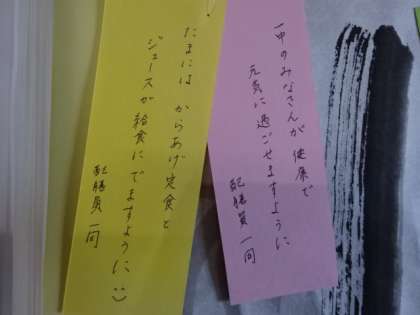 一中のみなさんが健康で
元気に過ごせますように
配膳員一同
たまには からあげ定食と
ジュースが給食にでますように:)
配膳員一同